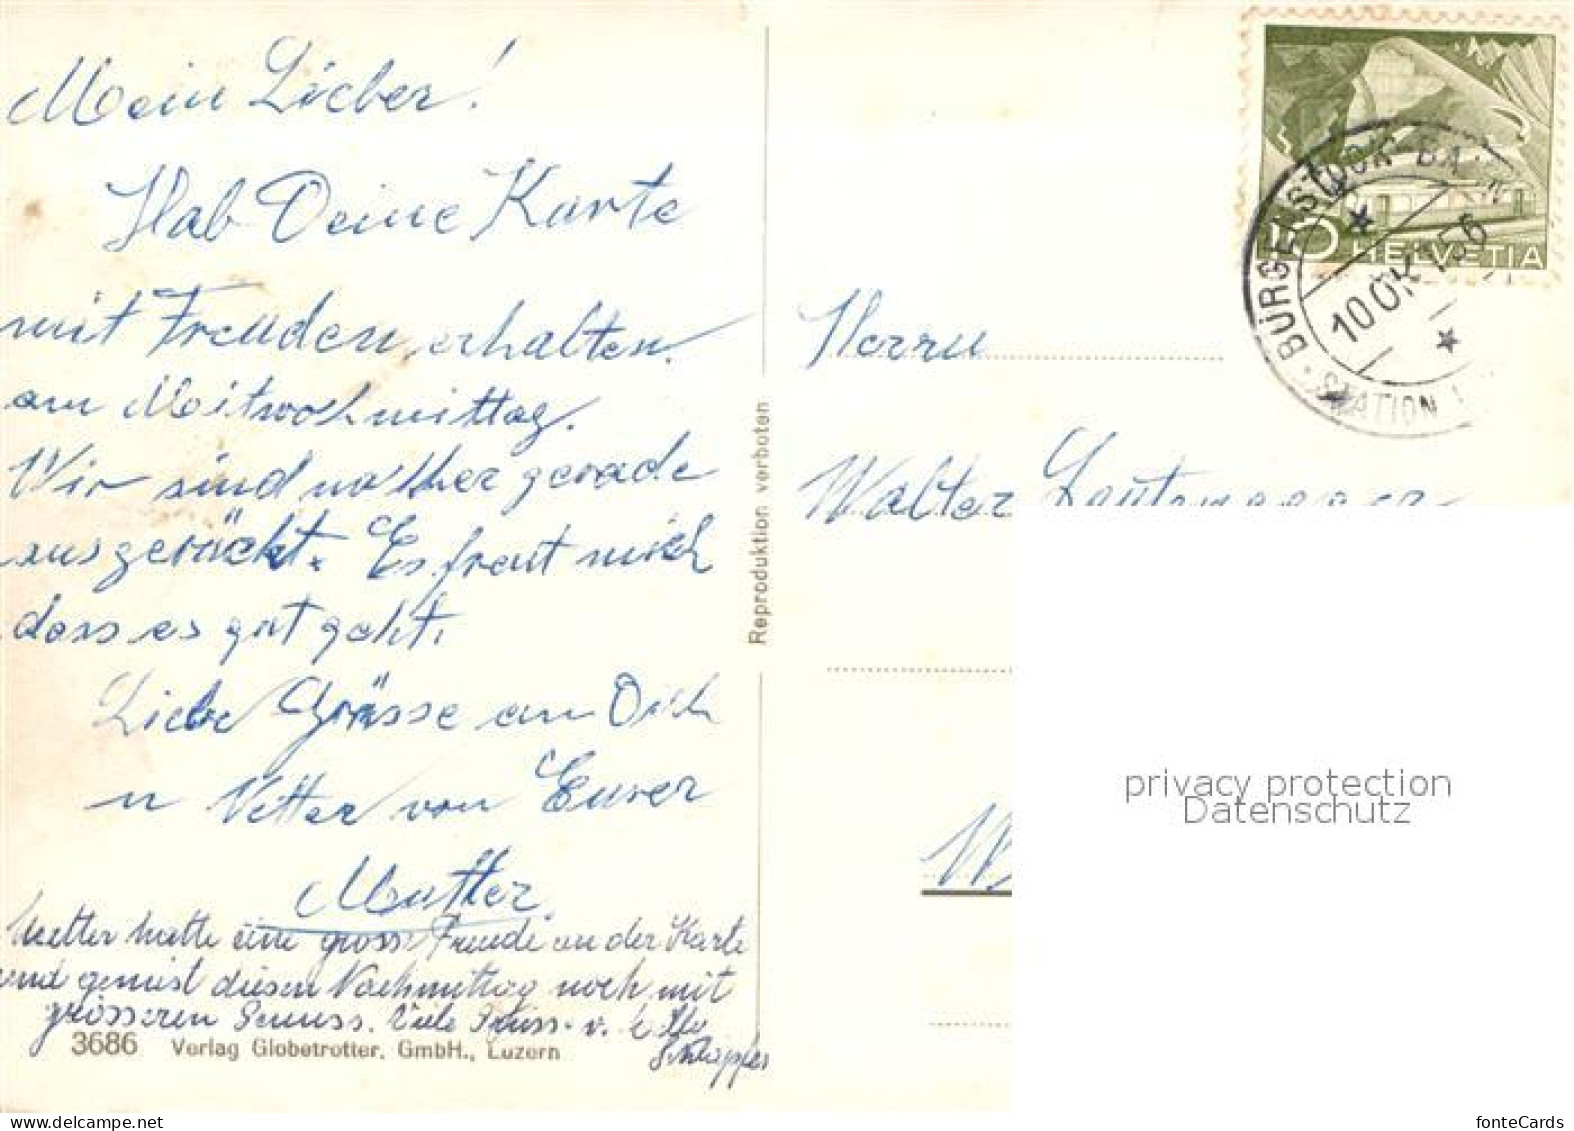 Mein Lieber!
Hab Deine Karte
mit Freuden erhalten
am Mitwochmittag.
Wir sind nachher gerade
ausgerückt. Es freut mich
dass es gut geht.
Liebe Grüsse an Dich
u Vetter von Eurer
Mutter.
Mutter hatte eine grosse Freude an der Karte
und geniest diesen Nachmittag noch mit
grösseren Genuss. Viele Grüss. v.
3686 Verlag Globetrotter. GmbH., Luzern
Reproduktion verboten
HELVETIA
BÜRGENSTOCK-BA
10 OKT 56
STATION
Herrn
Walter
privacy protection
Datenschutz
fonteCards